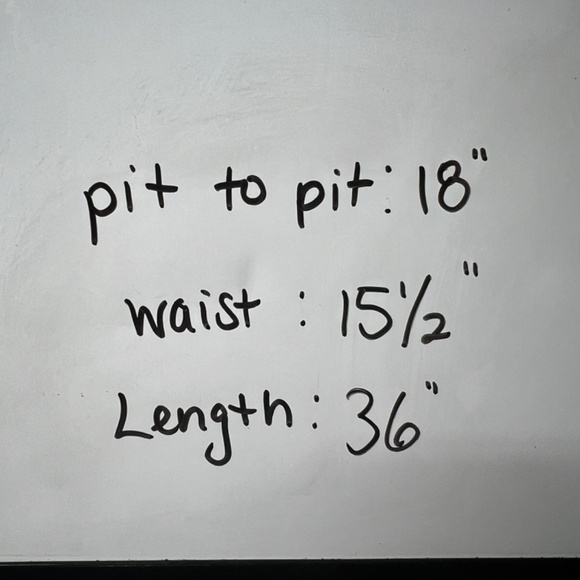 pit to pit: 18"
waist : 15 1/2"
Length: 36"